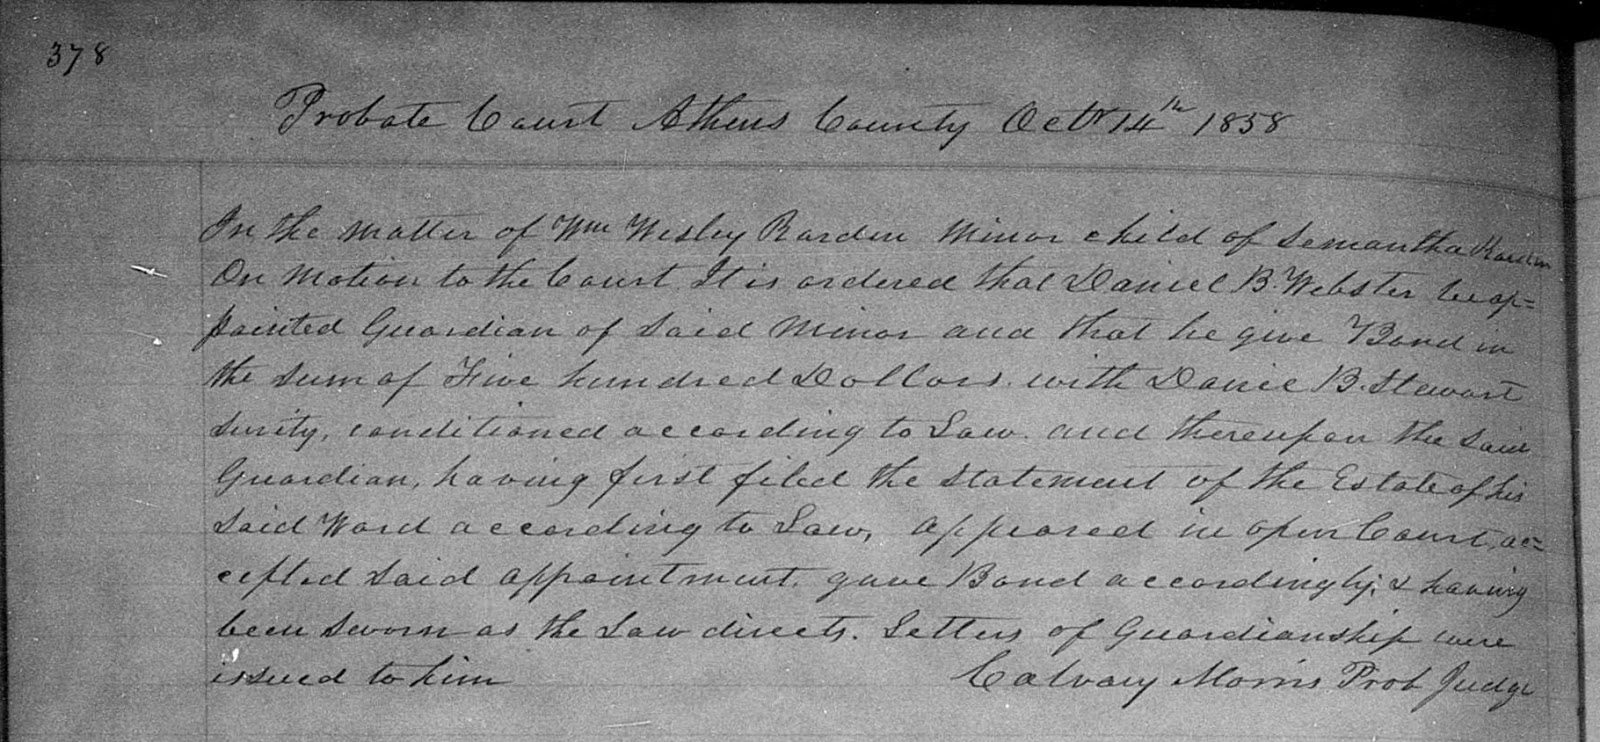 378
Probate Court Athens County Octr 14th 1858
In the matter of Wm Wesley Rarden Minor child of Semantha Rarden
On Motion to the Court It is ordered that Daniel B. Webster be ap=
pointed Guardian of said Minor and that he give Bond in
the sum of Five hundred Dollars. with Daniel B. Stewart
surity, conditioned according to Law. and thereupon the said
Guardian, having first filed the statement of the Estate of his
said Ward according to Law, appeared in open Court, ac=
cepted said appointment. gave Bond accordingly; & having
been sworn as the Law directs. Letters of Guardianship were
issued to him Calvary Morris Prob Judge